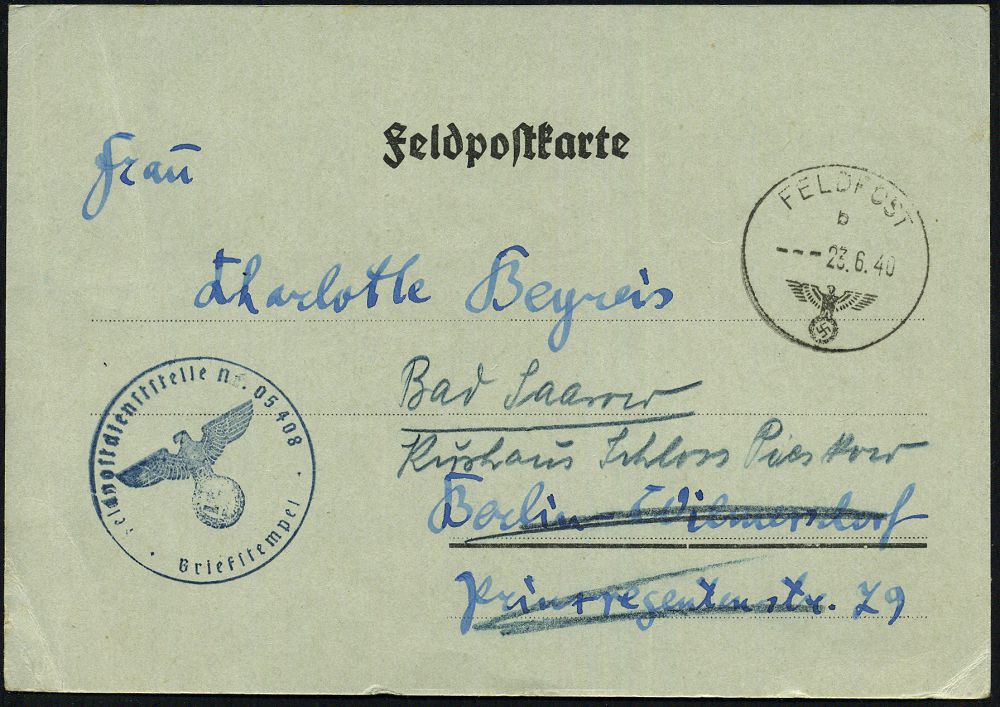 Feldpostkarte
Frau
Charlotte Beyreis
Bad Saarow
Kurhaus Schloss Pieskow
Berlin-Wilmersdorf
Prinzregentenstr. 79
FELDPOST
b
---23.6.40
Feldpostdienststelle Nr. 05408
Briefstempel